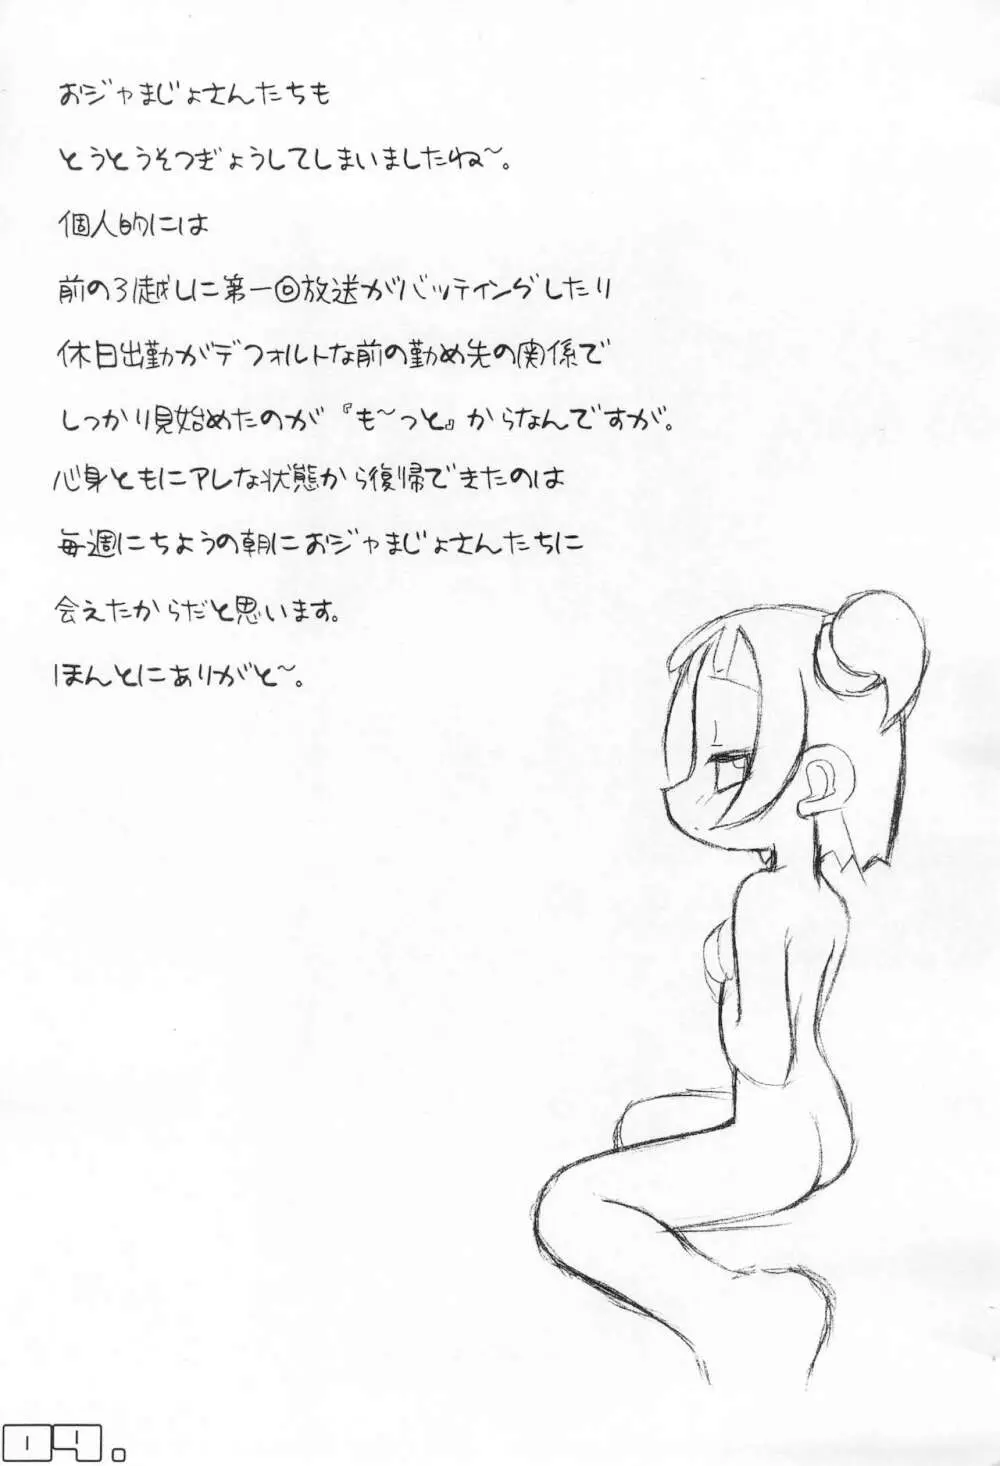 おジャまじょさんたちも
とうとうそつぎょうしてしまいましたね～。
個人的には
前の引越しに第一回放送がバッティングしたり
休日出勤がデフォルトな前の勤め先の関係で
しっかり見始めたのが『も～っと』からなんですが。
心身ともにアレな状態から復帰できたのは
毎週にちようの朝におジャまじょさんたちに
会えたからだと思います。
ほんとにありがと～。
09.